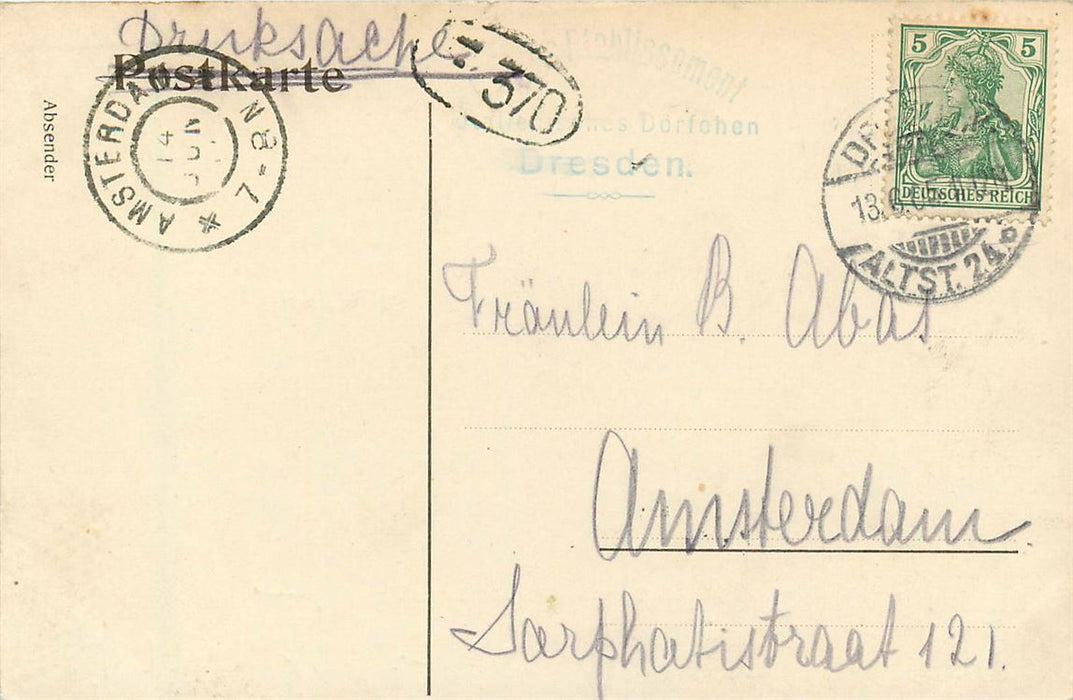 Drucksache
Postkarte
Absender
AMSTERDAM
N 8-L
14 JUN
370
Etablissement
Dörfchen
Dresden.
5 5
DEUTSCHES REICH
13.6.
ALTST. 24.
Fräulein B. Abas
Amsterdam
Sarphatistraat 121.